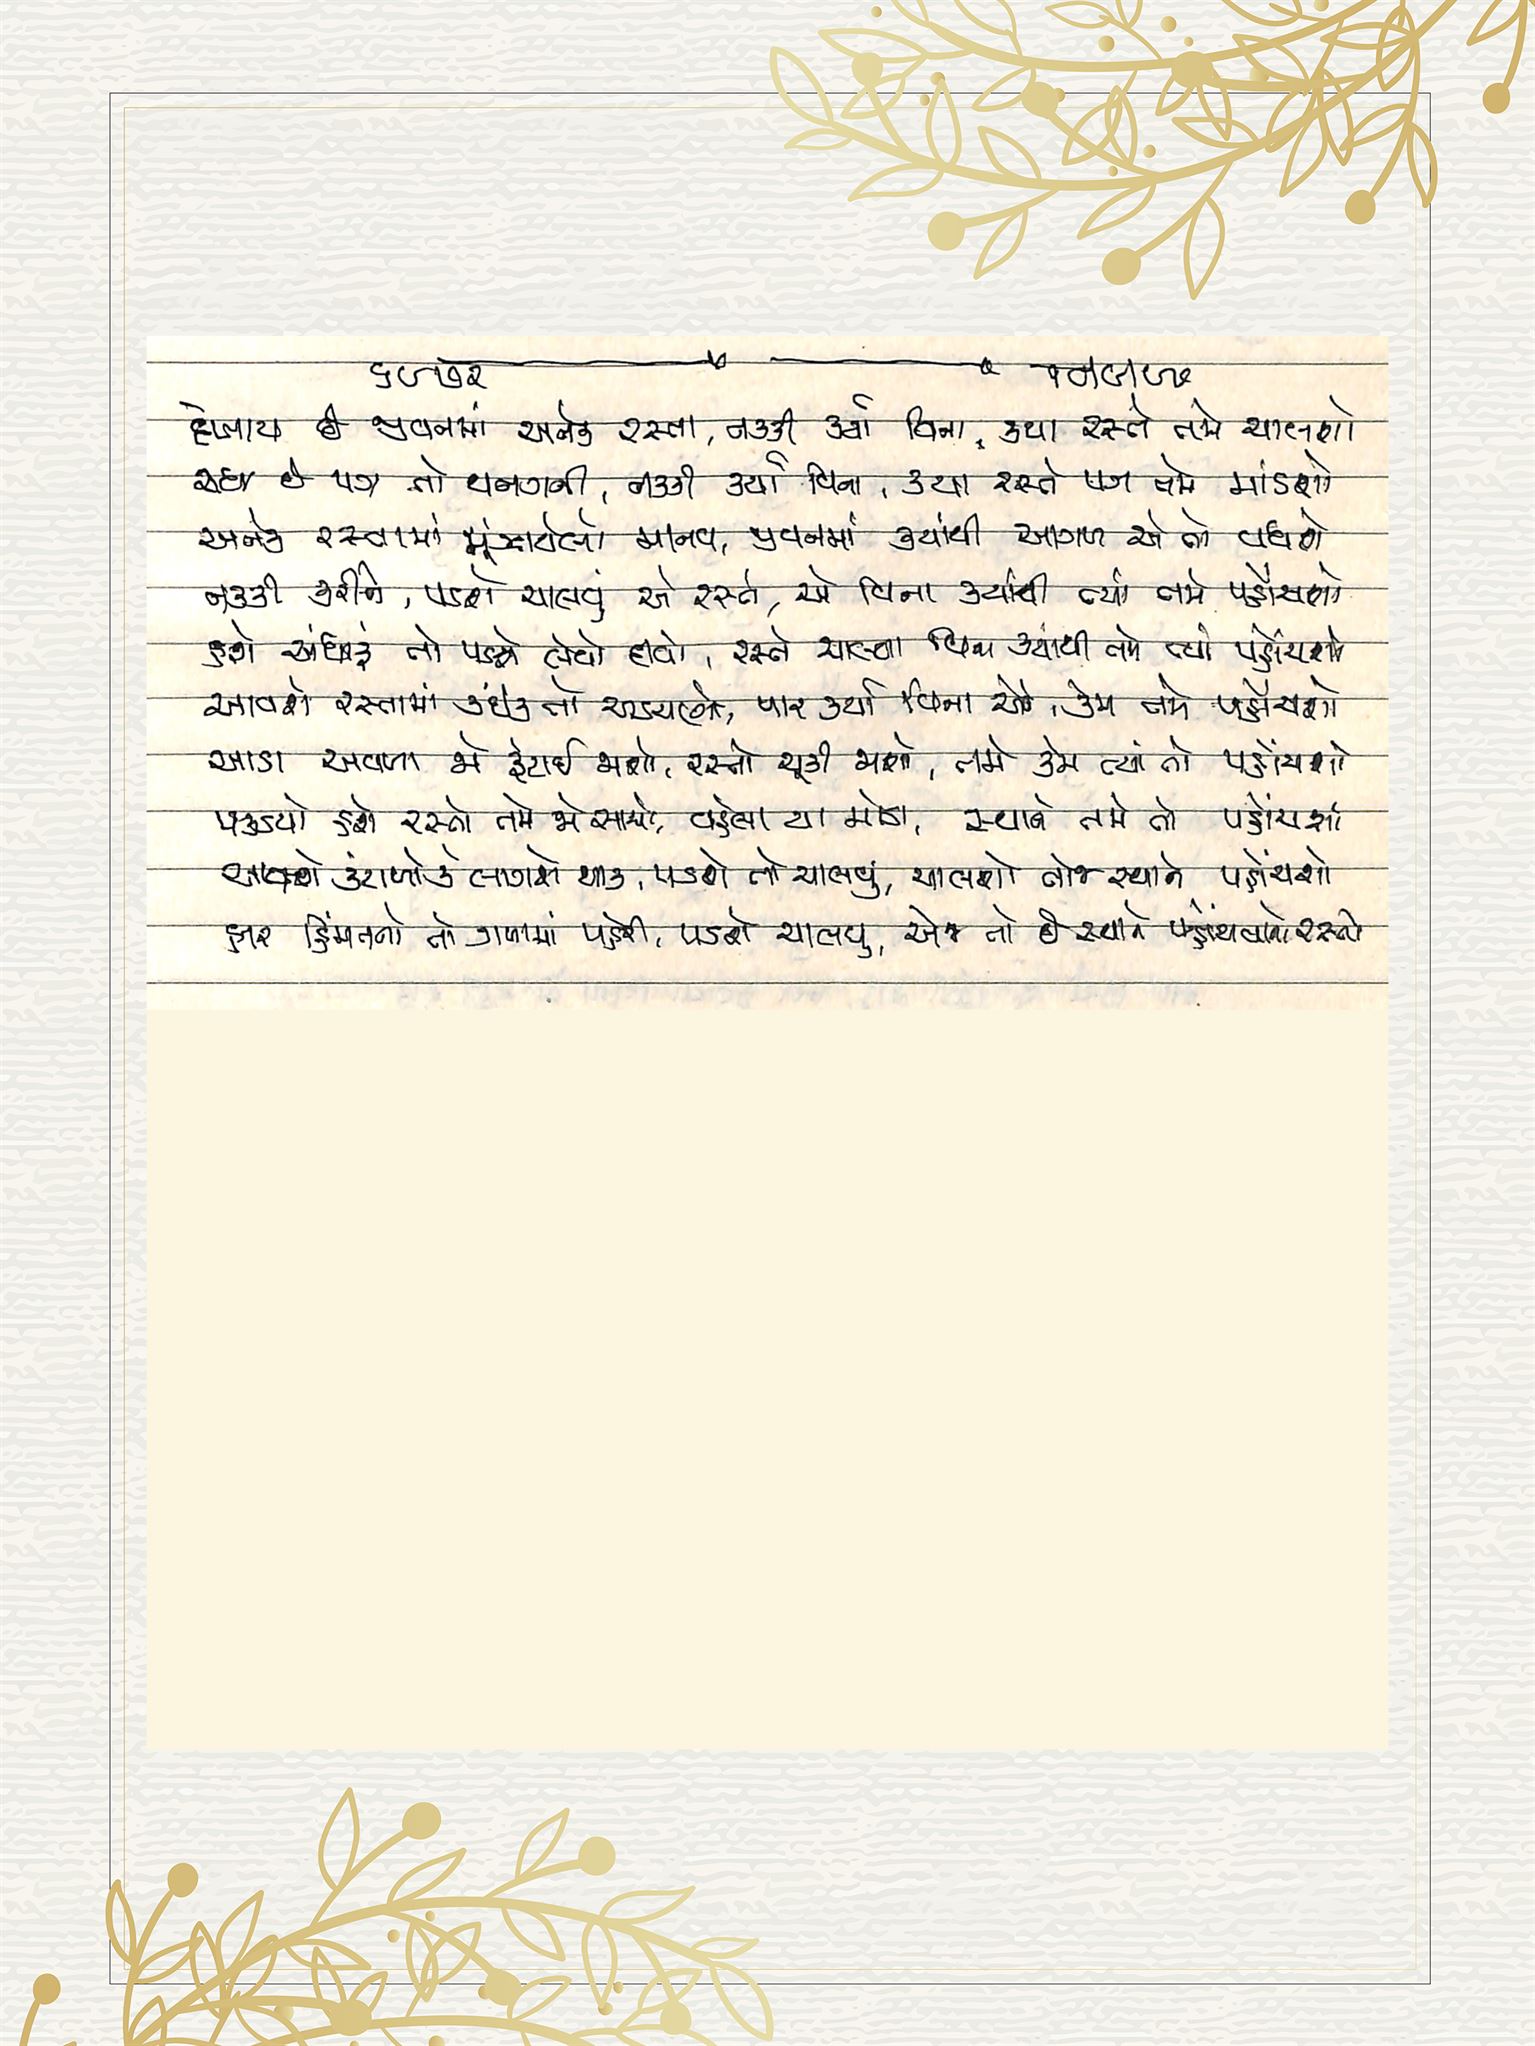 ફેલાય છે જીવનમાં અનેક રસ્તા, નક્કી કર્યા વિના, કયા રસ્તે તમે ચાલશો
સદા છે પગ તો થનગની, નક્કી કર્યા વિના, કયા રસ્તે પગ તમે માંડશો
અનેક રસ્તામાં મૂંઝાયેલો માનવ, જીવનમાં ક્યાંથી આગળ એ તો વધશે
નક્કી કરીને, પડશે ચાલવું એ રસ્તે, એ વિના ક્યાંથી ત્યાં તમે પહોંચશો
હશે અંધારું તો પડશે લેવો દીવો, રસ્તે ચાલ્યા વિના ક્યાંથી તમે ત્યાં પહોંચશો
આવશે રસ્તામાં કંઈક તો અડચણો, પાર કર્યા વિના એને, કેમ તમે પહોંચશો
આડા અવળા જો ફંટાઈ જાશો, રસ્તો ચૂકી જાશો, તમે કેમ ત્યાં તો પહોંચશો
પકડયો હશે રસ્તો તમે જો સાચો, વહેલા યા મોડા, સ્થાને તમે તો પહોંચશો
આવશે કંટાળો કે લાગશે થાક, પડશે તો ચાલવું, ચાલશો તોજ સ્થાને પહોંચશો
હાર હિંમતનો તો ગળામાં પહેરી, પડશે ચાલવુ, એજ તો છે સ્થાને પહોંચવાનો રસ્તો